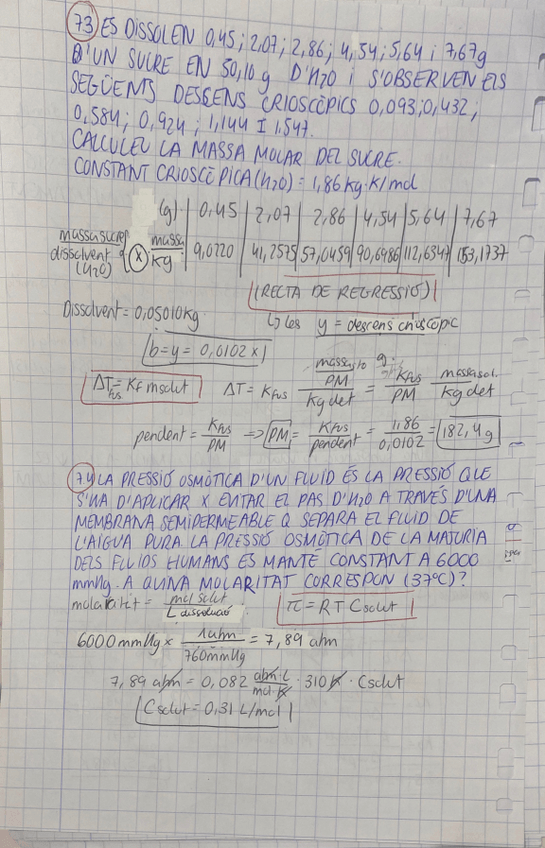 73) ES DISSOLEN 0,45; 2,07; 2,86; 4,54; 5,64 i 7,67g
D'UN SUCRE EN 50,10 g D'H2O i S'OBSERVEN ELS
SEGÜENTS DESCENS CRIOSCÒPICS 0,093; 0,432;
0,584; 0,924; 1,144 I 1,547.
CALCULEU LA MASSA MOLAR DEL SUCRE.
CONSTANT CRIOSCÒPICA (H2O) = 1,86 Kg·K/mol
(g) | 0,45 | 2,07 | 2,86 | 4,54 | 5,64 | 7,67
massa sucre
dissolvent (H2O) (X) massa/Kg | 9,0220 | 41,2525 | 57,0459 | 90,6986 | 112,6347 | 153,1737
(RECTA DE REGRESSIÓ)
Dissolvent = 0,05010 Kg ↳ les y = descens crioscòpic
b = y = 0,0102 x
ΔTfus = Kf msolut ΔT = Kfus (massa sto g. / PM) / Kg det = Kfus / PM massa sol. / Kg det
pendent = Kfus / PM => PM = Kfus / pendent = 1,86 / 0,0102 = 182,4 g
74) LA PRESSIÓ OSMÒTICA D'UN FLUID ÉS LA PRESSIÓ QUE
S'HA D'APLICAR X EVITAR EL PAS D'H2O A TRAVÉS D'UNA
MEMBRANA SEMIPERMEABLE Q SEPARA EL FLUID DE
L'AIGUA PURA LA PRESSIÓ OSMÒTICA DE LA MATURIA
DELS FLUIDS HUMANS ES MANTÉ CONSTANT A 6000
mmHg. A QUINA MOLARITAT CORRESPON (37ºC)?
molaritat = mol solut / L dissolució π = RT Csolut
6000 mmHg x 1 atm / 760 mmHg = 7,89 atm
7,89 atm = 0,082 atm·L / mol·K · 310 K · Csolut
Csolut = 0,31 L/mol